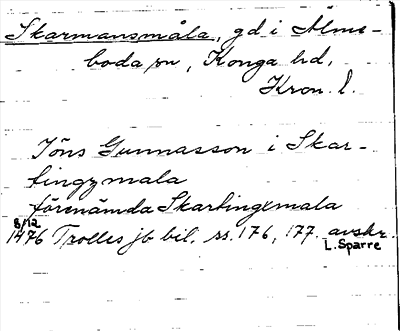 Skarmansmåla, gd i Älme-
boda sn, Konga hd,
Kron. l.
Jöns Gunnasson i Skar-
tingz mala
förenämda Skartingxmala
8/12
1476 Trolles jb bil. ss. 176, 177. avskr.
L. Sparre